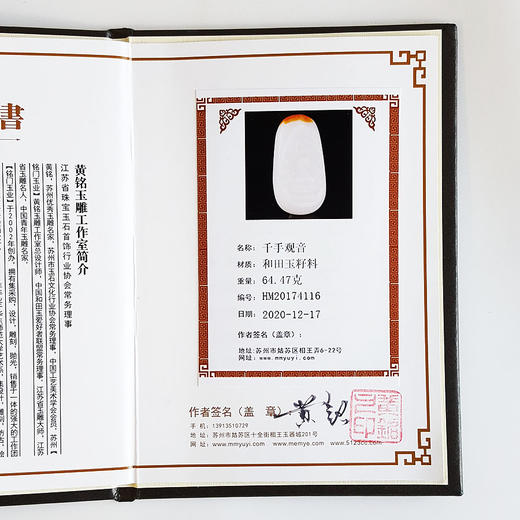 書
黄铭玉雕工作室简介
江苏省珠宝玉石首饰行业协会常务理事
黄铭、苏州优秀玉雕名家、苏州市玉石文化行业协会常务理事、中国工艺美术学会会员、苏州【
铭门玉业】黄铭玉雕工作室总设计师、中国和田玉爱好者联盟常务理事、江苏省玉雕大师、江苏
省玉雕名人、中国青年玉雕名家。
【铭门玉业】于2002年创办，拥有集采购，设计，雕刻，抛光，销售于一体的强大的工作团
名称: 千手观音
材质: 和田玉籽料
重量: 64.47克
编号: HM20174116
日期: 2020-12-17
作者签名(盖章):
地址:苏州市姑苏区相王弄6-22号
网址: www.mmyuyi.com
作者签名(盖 章) 黄铭
手 机: 13913510729
地址: 苏州市姑苏区十全街相王玉器城201号
网址: www.mmyuyi.com www.memye.com www.5123cc.com